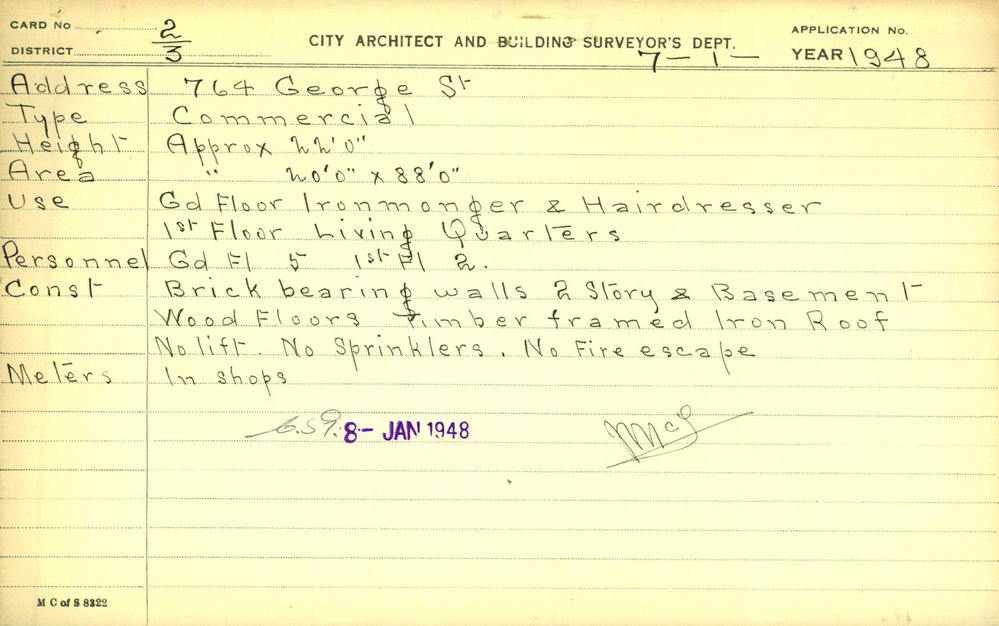 CARD No 2
DISTRICT 3
CITY ARCHITECT AND BUILDING SURVEYOR'S DEPT.
APPLICATION No.
7-1- YEAR 1948
Address 764 George St
Type Commercial
Height Approx 22'0"
Area " 20'0" x 88'0"
Use Gd Floor Ironmonger & Hairdresser
1st Floor Living Quarters
Personnel Gd Fl 5 1st Fl 2.
Const Brick bearing walls 2 Story & Basement
Wood Floors Timber framed Iron Roof
No lift. No Sprinklers. No Fire escape
Meters In shops
8- JAN 1948
M C of S 8322